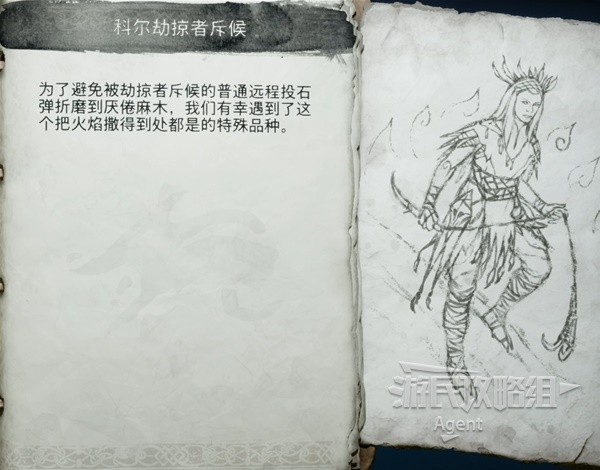 科尔劫掠者斥候
为了避免被劫掠者斥候的普通远程投石
弹折磨到厌倦麻木，我们有幸遇到了这
个把火焰撒得到处都是的特殊品种。
游民攻略组
Agent